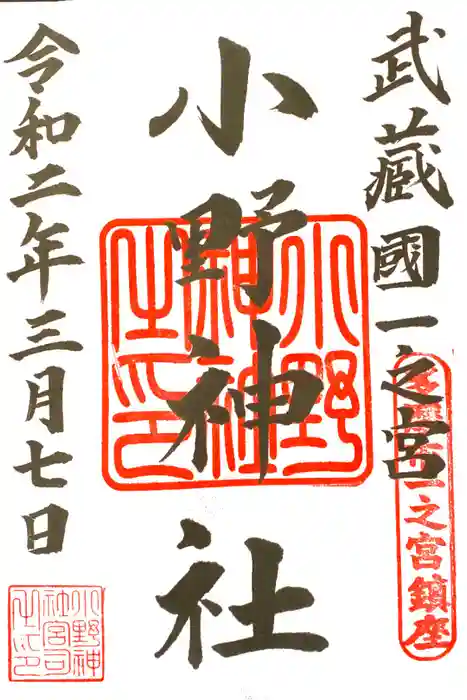 武藏國一之宮
小野神社
令和二年三月七日
小野
神社
之印
一之宮鎮座
小野神
社宮司
之印